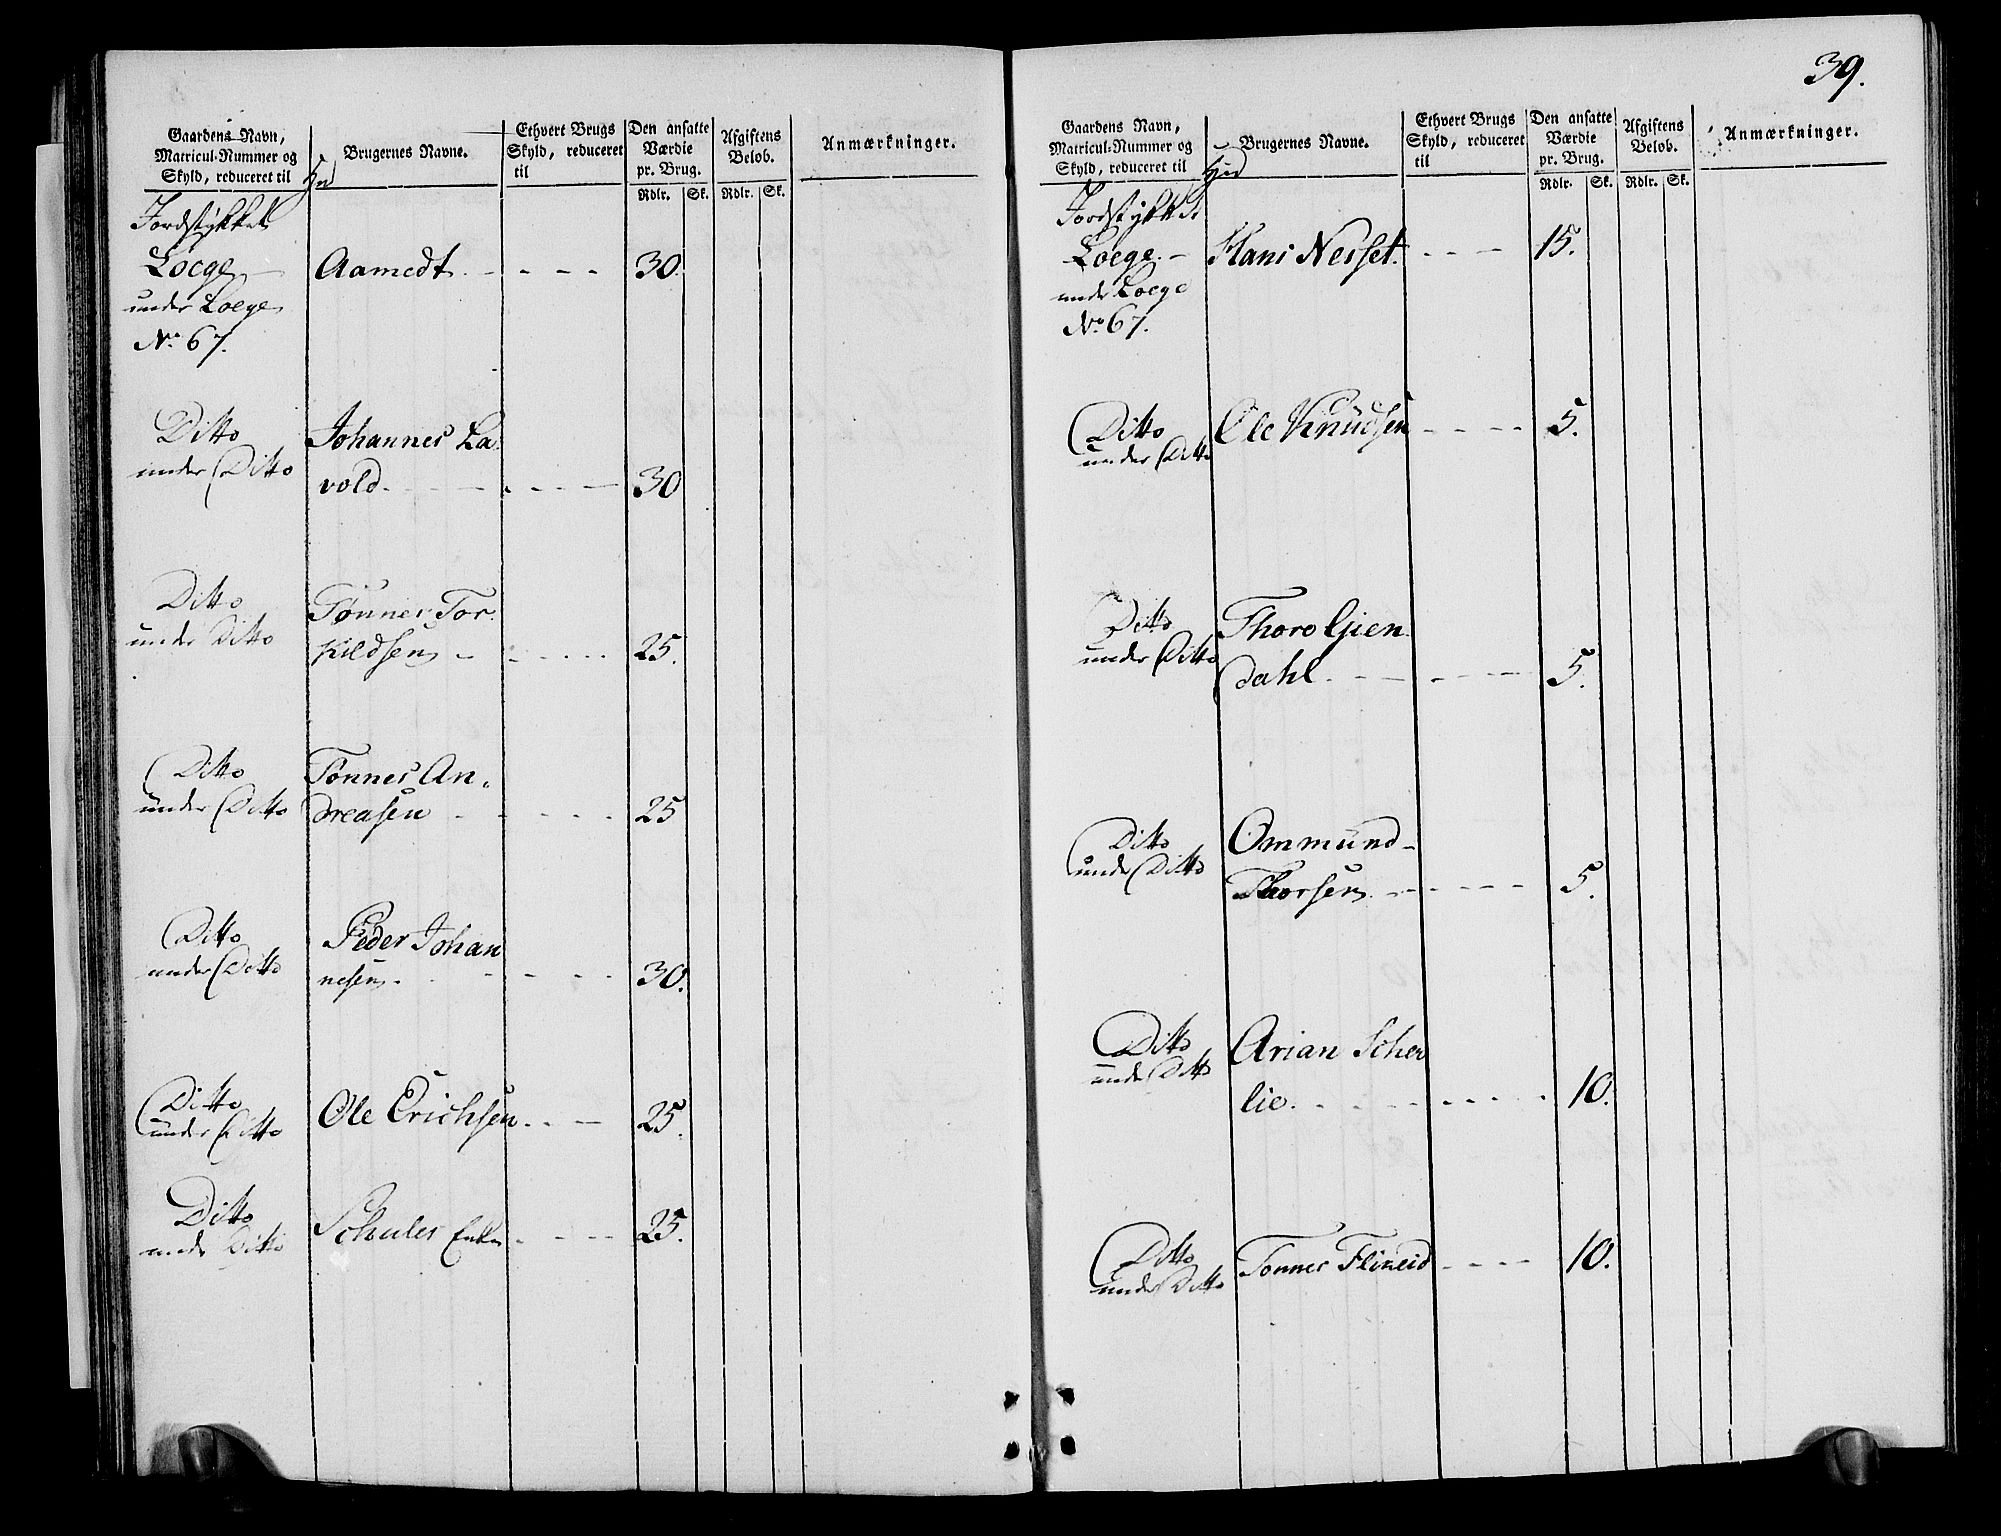 Gaardens Navn,
Matricul-Nummer og
Skyld, reduceret til
Brugernes Navne.
Ethvert Brugs
Skyld, reduceret
til
Den ansatte
Værdie
pr. Brug.
Rdlr. Sk.
Afgiftens
Beløb.
Rdlr. Sk.
Anmærkninger.
Jordstykket
Loege - Aamodt - - - - 30.
under Loege
No. 67.
Ditto Johannes La-
under Ditto vold - - - - 30
Ditto Tønnes Tor-
under Ditto kildsen - - - - 25.
Ditto Tønnes An-
under Ditto dreasen - - - - 25
Ditto Peder Johan
under Ditto nesen - - - - 30.
Ditto Ole Erichsen - - - 25.
under Ditto
Ditto Schules Enke - - - 25.
under Ditto
39.
Gaardens Navn,
Matricul-Nummer og
Skyld, reduceret til
Brugernes Navne.
Ethvert Brugs
Skyld, reduceret
til
Den ansatte
Værdie
pr. Brug.
Rdlr. Sk.
Afgiftens
Beløb.
Rdlr. Sk.
Anmærkninger.
Jordstykket
Loege - Hans Nesset - - - 15.
under Loege
No. 67.
Ditto Ole Knudsen - - - - 5.
under Ditto
Ditto Thoro Gien-
under Ditto dahl - - - - 5.
Ditto Ommund
under Ditto Thorsen - - - - 5.
Ditto Arian Scher
under Ditto lie - - - - 10.
Ditto Tønnes Flikeid - - - 10.
under Ditto